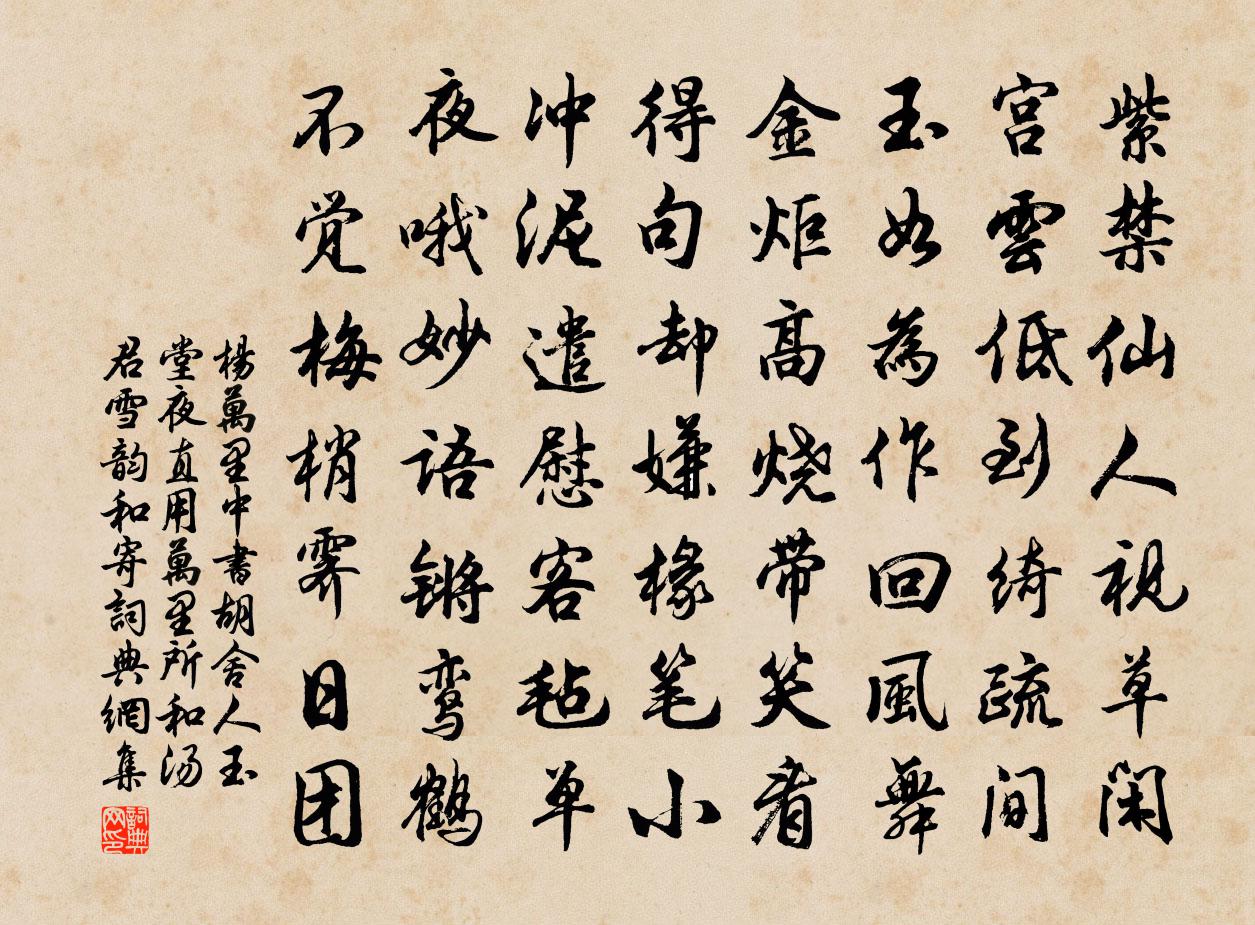 紫禁仙人視草閑
宮雲低到綺疏间
玉如為作回風舞
金炬高烧带笑看
得句却嫌椽笔小
冲泥遣慰客毡单
夜哦妙语锵鸾鹤
不觉梅梢霁日团
楊萬里中書胡舍人玉
堂夜直用萬里所和湯
君雪韵和寄詞典網集
詞典网印